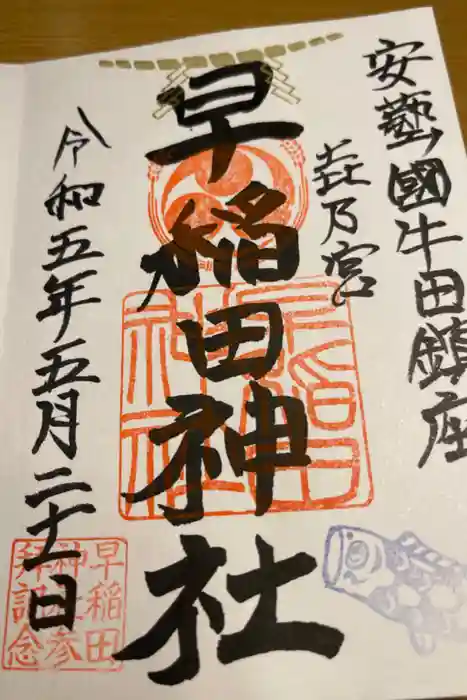 安藝國牛田鎮座
㐂乃宮
早稲田神社
令和五年五月二十一日
早稲田神社
早稲田
神社参
拝記念